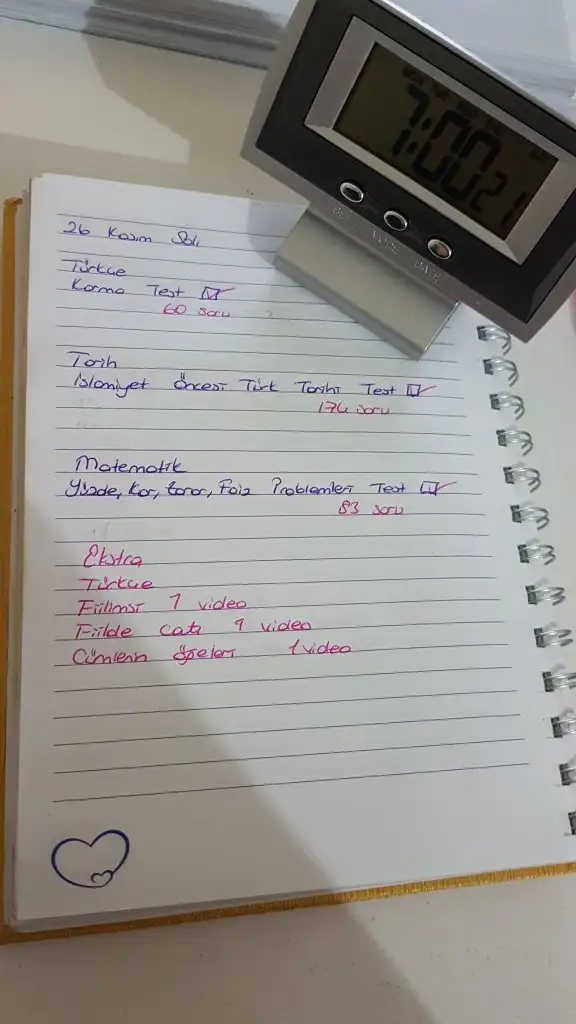 7:00
1:00 21
SET MODE DATE
26 Kasım Salı
Türkçe
Karma Test
60 soru
Tarih
İslamiyet Öncesi Türk Tarihi Test
174 soru
Matematik
Yüzde, Kar, Zarar, Faiz Problemleri Test
83 soru
Ekstra
Türkçe
Fiilimsi 1 video
Fiilde çatı 1 video
Cümlenin öğeleri 1 video